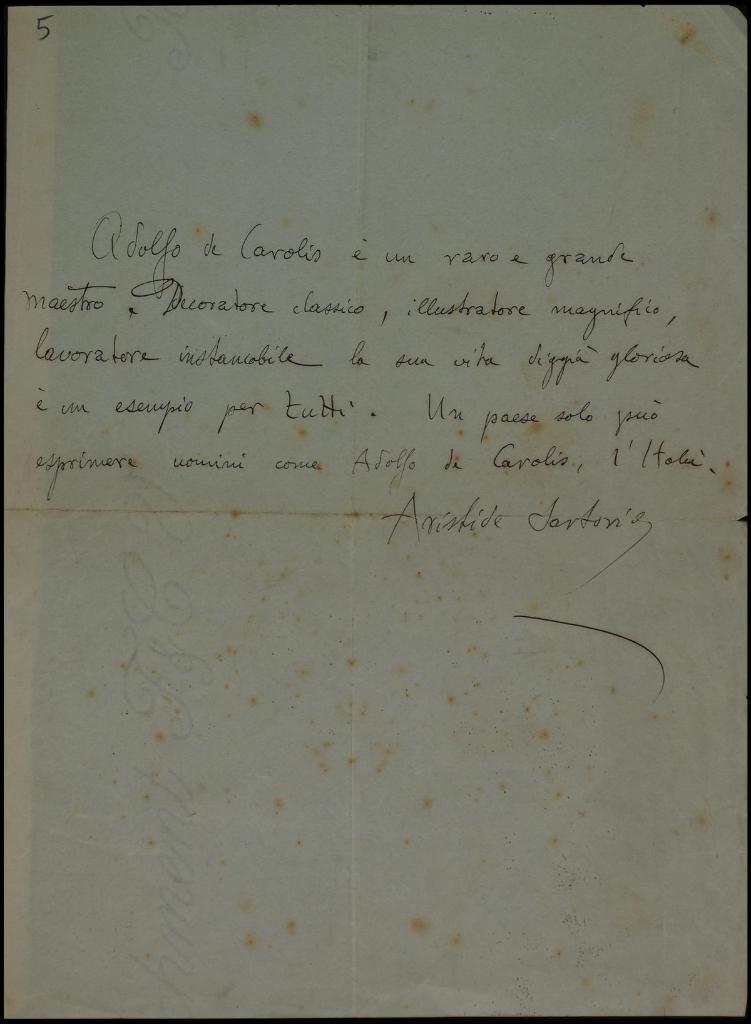 5
Adolfo de Carolis è un raro e grande
maestro. Decoratore classico, illustratore magnifico,
lavoratore instancabile la sua vita diggià gloriosa
è un esempio per tutti. Un paese solo può
esprimere uomini come Adolfo de Carolis, l'Italia.
Aristide Sartorio